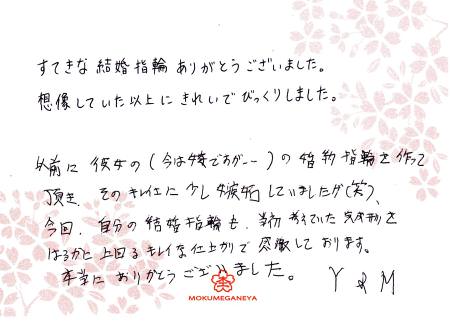 すてきな結婚指輪ありがとうございました。
想像していた以上にきれいでびっくりしました。
以前に彼女の(今は妻ですが--)の婚約指輪を作って
頂き、そのキレイに少し嫉妬していましたが(笑)、
今回、自分の結婚指輪も、当初考えていた完成形を
はるかに上回るキレイな仕上がりで感激しております。
本当にありがとうございました。
Y & M
MOKUMEGANEYA